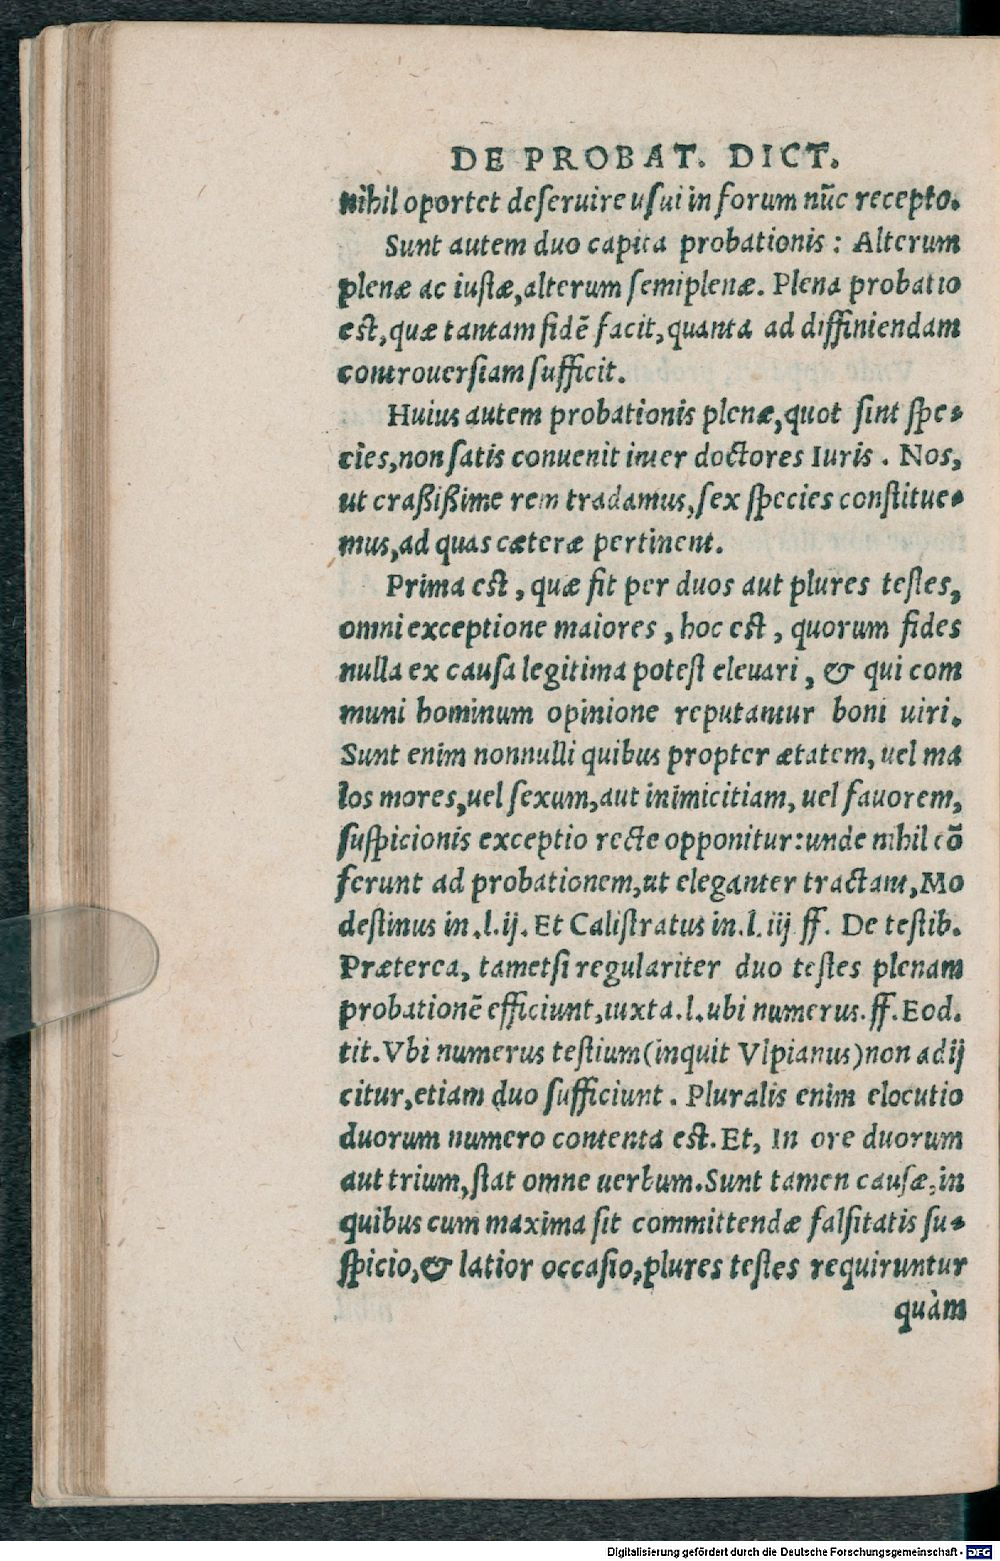 DE PROBAT. DICT.
nihil oportet deseruire usui in forum nūc recepto.
Sunt autem duo capita probationis: Alterum
plenæ ac iustæ, alterum semiplenæ. Plena probatio
est, quæ tantam fidē facit, quanta ad diffiniendam
controuersiam sufficit.
Huius autem probationis plenæ, quot sint spe-
cies, non satis conuenit inter doctores Iuris. Nos,
ut craßißime rem tradamus, sex species constitue-
mus, ad quas cæteræ pertinent.
Prima est, quæ fit per duos aut plures testes,
omni exceptione maiores, hoc est, quorum fides
nulla ex causa legitima potest eleuari, & qui com
muni hominum opinione reputantur boni uiri.
Sunt enim nonnulli quibus propter ætatem, uel ma
los mores, uel sexum, aut inimicitiam, uel fauorem,
suspicionis exceptio recte opponitur: unde nihil cō
ferunt ad probationem, ut eleganter tractant, Mo
destinus in .l. ij. Et Calistratus in .l. iij ff. De testib.
Præterea, tametsi regulariter duo testes plenam
probationē efficiunt, iuxta .l. ubi numerus. ff. Eod.
tit. Vbi numerus testium (inquit Vlpianus) non adij
citur, etiam duo sufficiunt. Pluralis enim elocutio
duorum numero contenta est. Et, In ore duorum
aut trium, stat omne uerbum. Sunt tamen causæ, in
quibus cum maxima sit committendæ falsitatis su-
spicio, & latior occasio, plures testes requiruntur
quàm
Digitalisierung gefördert durch die Deutsche Forschungsgemeinschaft - DFG